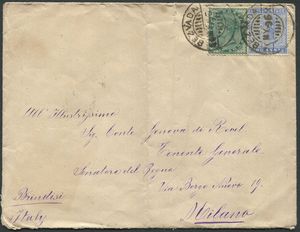 BEZWADA
All' Illustrissimo
Sig. Conte Genova di Revel
Tenente Generale
Senatore del Regno
Via Borgo Nuovo 19.
Milano
Brindisi
Italy